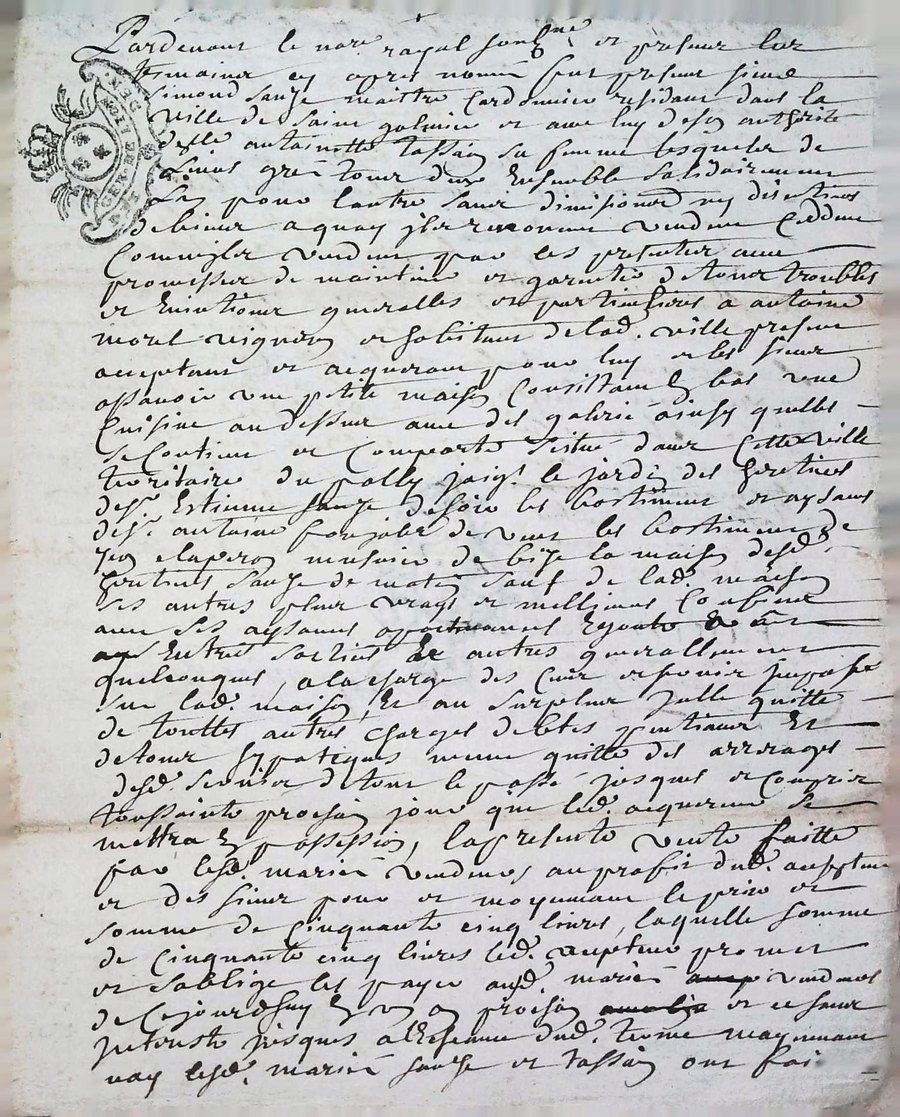 Pardevant le nore royal soubne et presence des
temoins cy apres nommé fut present sieur
simond sauze maittre Cordonnier residant dans la
GEN. DE LION
ville de saint galmier et avec luy de son authorité
delle antoinette tassain sa femme lesquels de
leurs gré tous deux Ensemble solidairement
Lun pour lautre sans division ny discution
de biens a quoy ils renoncent vendent Cedent
Comme ils vendent par ces presentes avec
promesse de maintenir et garentir de tous troubles
et Evictions generalles et particulieres a antoine
morel vigneron et habitant de lad. ville present
acceptant et acquerant pour luy et les siens
assavoir une petite maison Consistant En bas une
Cuisine au dessus avec des galerie ainsy quelle
se Contient et Comporte scitué dans Cette ville
territoire du joignt le jardin des heritiers
de sr. Estienne sauze de soir les bastiments et aysances
de sr. antoine de vent les bastiments de
de bize la maison desd.
heritiers sauze de matin sauf de lad. maison
ses autres plus vrays et meilleurs Confins
avec ses aysances
Entrees sorties Et autres generallement
quelconques, a la charge des Cens et servis imposés
sur lad. maison, Et au surplus jcelle quitte
de touttes autres charges debtes pentions Et
de tous hypoteques meme quitte des arrerages
desd. servis de tout le passé jusques et Compris
toussaints prochain jour que led. acquereur se
mettra En possession, la presente vente faitte
par lesd. mariés vendeurs au profit dud. accepteur
et des siens pour et moyennant le prix et
somme de Cinquante cinq livres, laquelle somme
de Cinquante cinq livres led. accepteur promet
et soblige les payer aud. mariés vendeurs
de Cejourdhuy En un an prochain et ce sans
jnterest jusques a lEcheance dud. terme moyennant
quoy lesd. mariés sauze et tassain ont fai